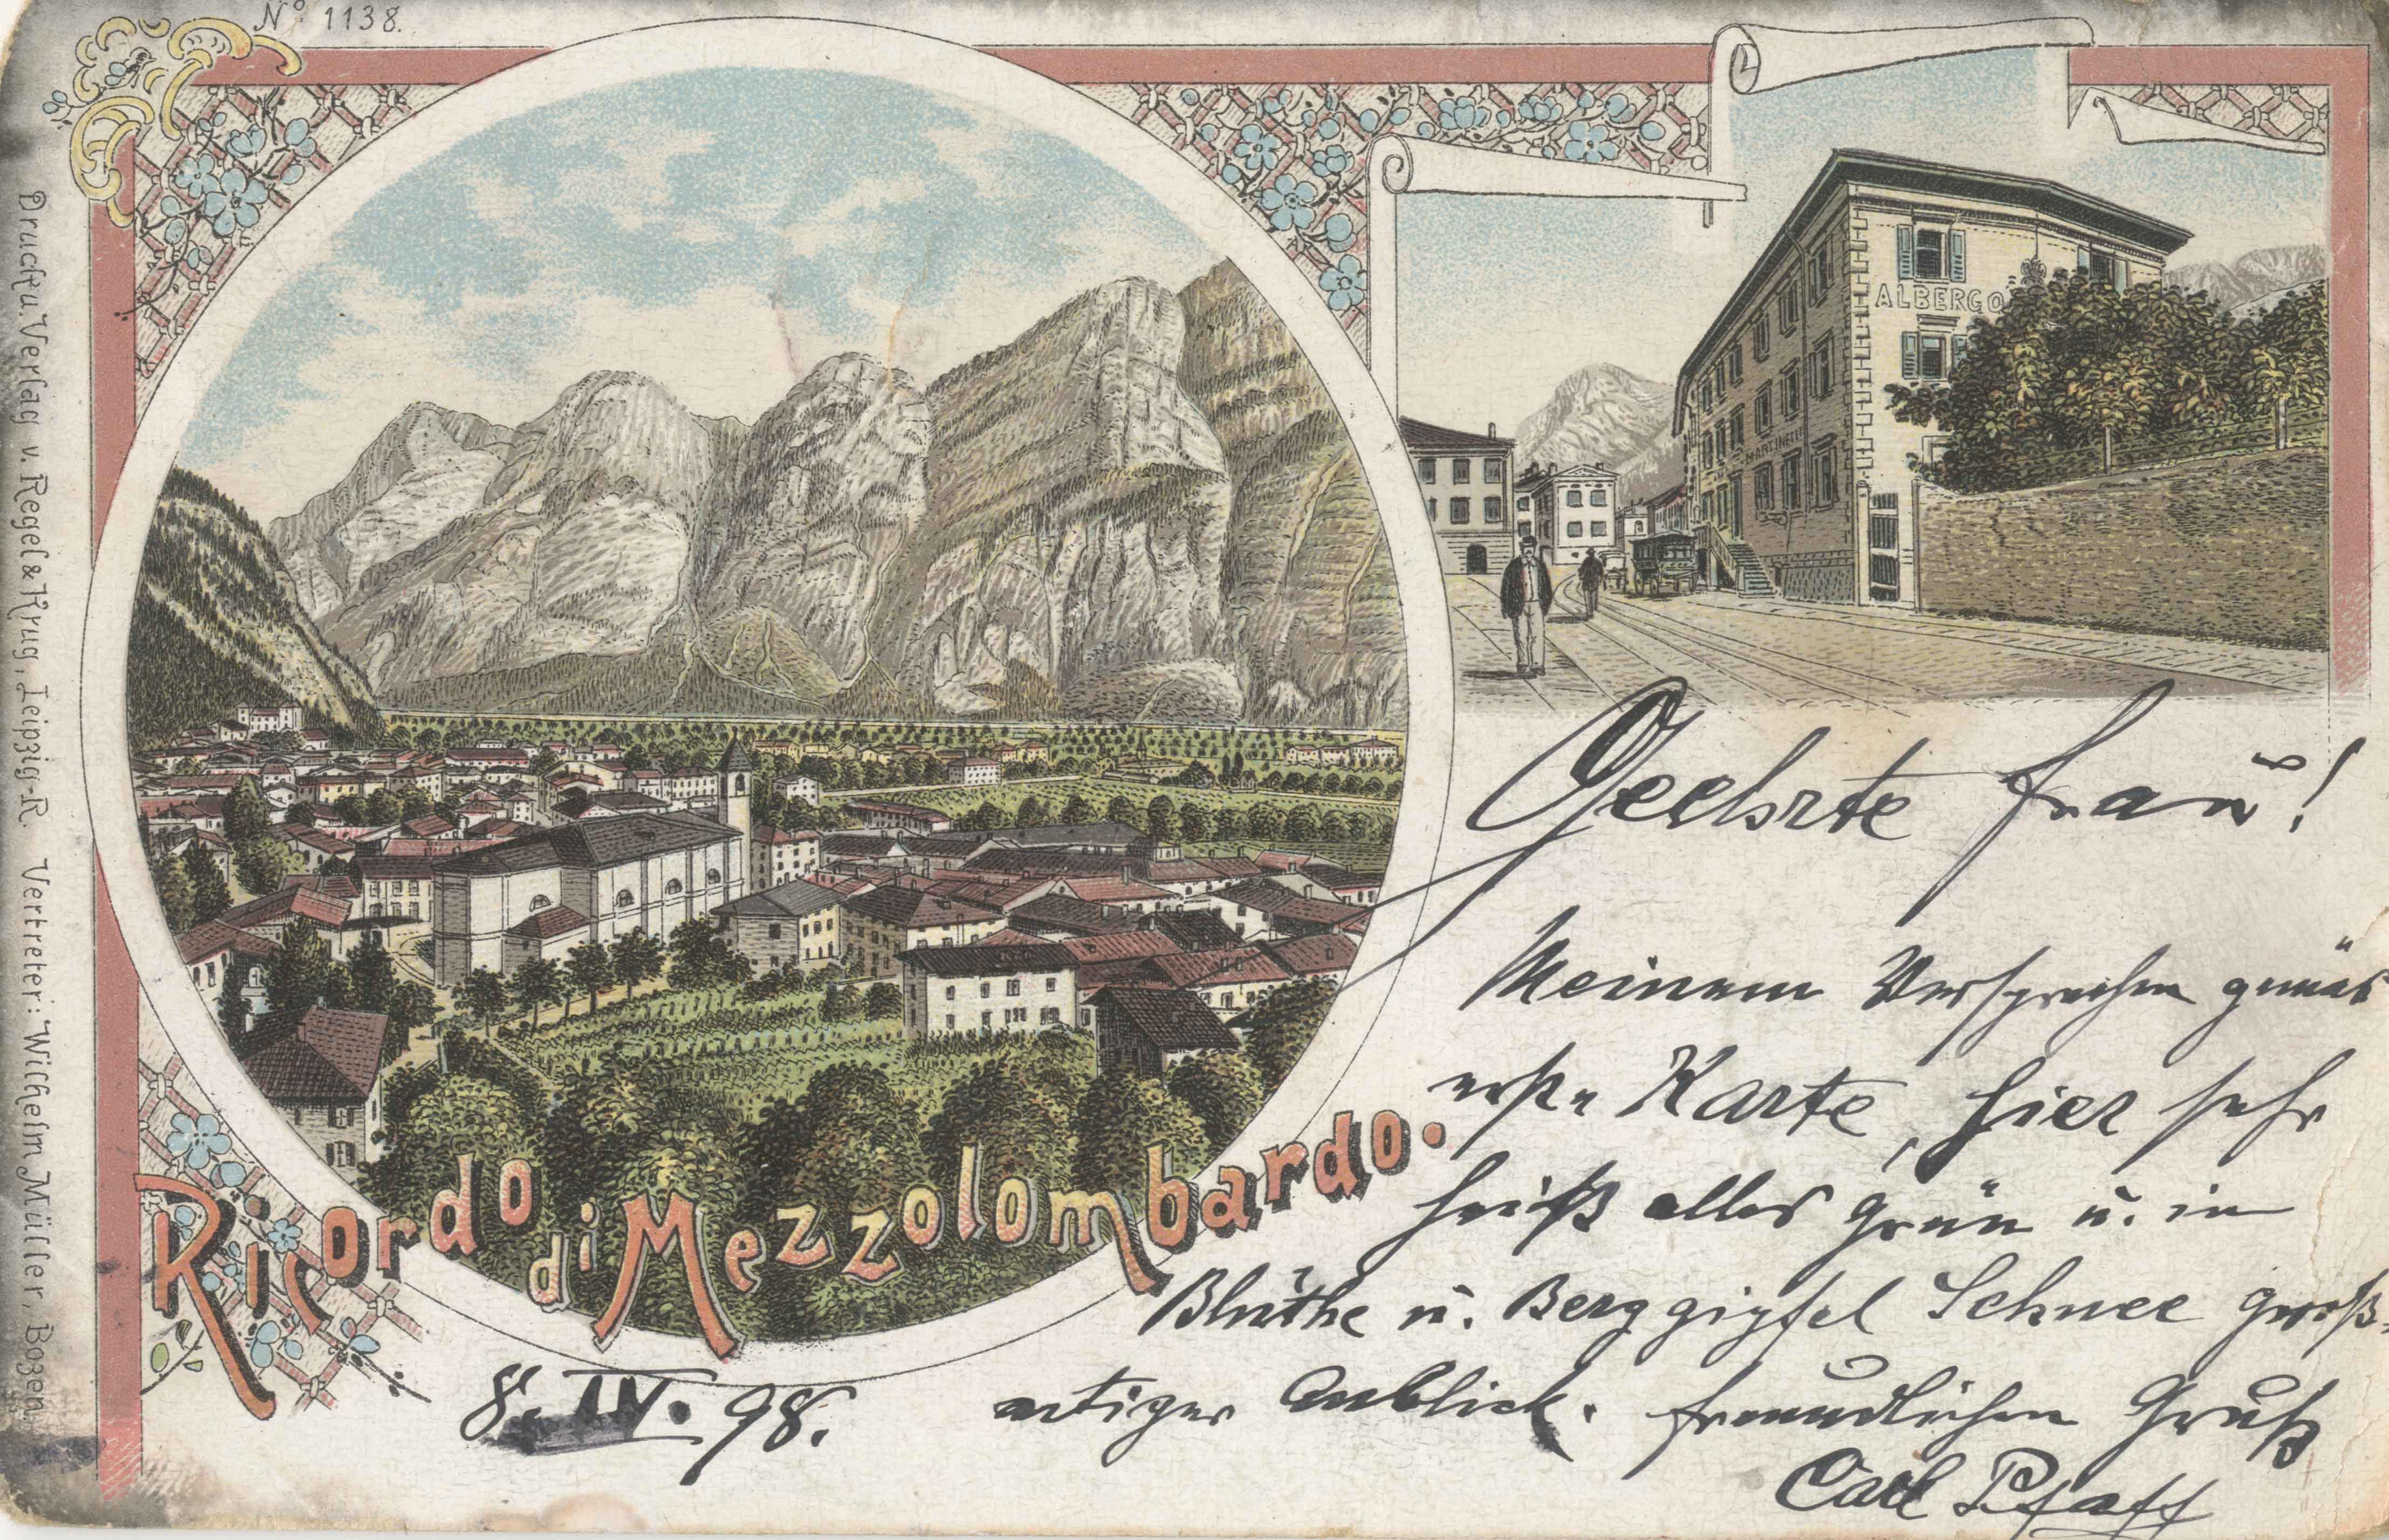 Nº 1138.
Druck u. Verlag v. Regel & Krug, Leipzig-R. Vertreter: Wilhelm Müller, Bozen.
ALBERGO
MARTINELLI
Ricordo di Mezzolombardo.
Geehrte Frau!
Meinem Versprechen gemäs
erste Karte, hier sehr
heiß alles grün u. in
Blüthe u. Berggipfel Schnee groß-
artiger Anblick. freundlichen Gruß
Carl Pfaff
8. IV. 98.